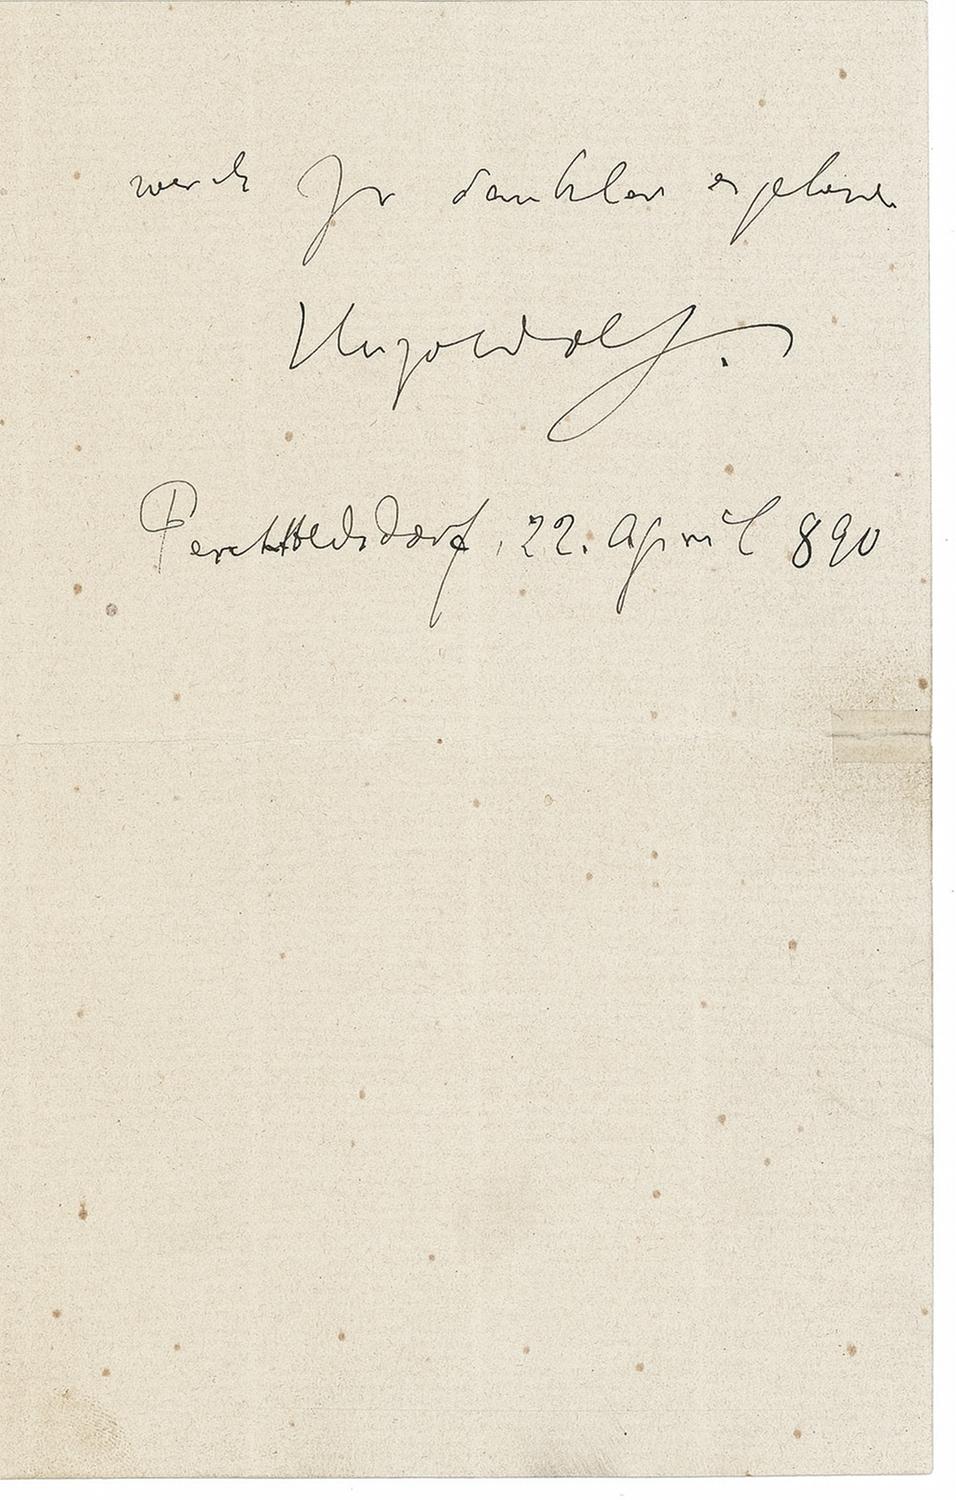 Ihr dankbar ergebener
Hugo Wolf.
Perchtoldsdorf, 22. April 890